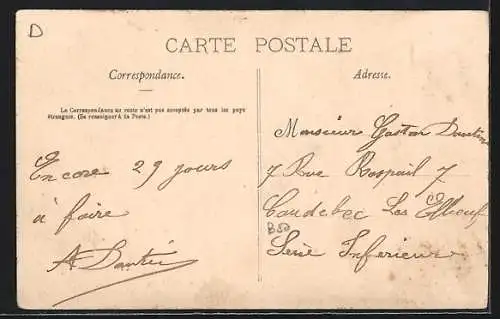 D
CARTE POSTALE
Correspondance.
Adresse.
La Correspondance au recto n'est pas acceptée par tous les pays
étrangers. (Se renseigner à la Poste.)
Encore 29 jours
à faire
Monsieur Gaston
7 Rue Raspail 7
Caudebec Les Elbeuf
Seine Inferieure
B50